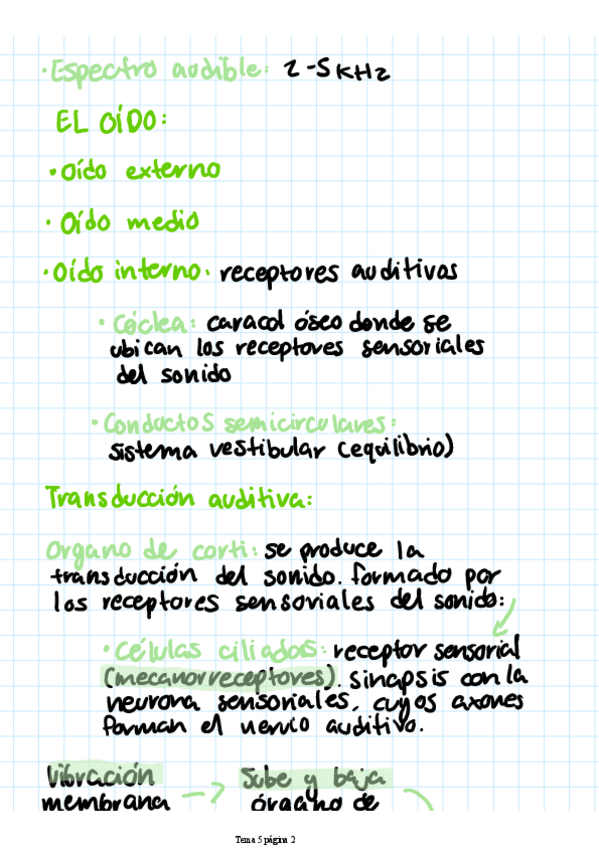 · Espectro audible: 2-5 KHz
EL OÍDO:
· Oído externo
· Oído medio
· Oído interno: receptores auditivos
· Cóclea: caracol óseo donde se
ubican los receptores sensoriales
del sonido
· Conductos semicirculares:
sistema vestibular (equilibrio)
Transducción auditiva:
Organo de corti: se produce la
transducción del sonido. formado por
los receptores sensoriales del sonido:
· Células ciliadas: receptor sensorial
(mecanorreceptores). Sinapsis con la
neurona sensoriales, cuyos axones
forman el nervio auditivo.
Vibración → Sube y baja
membrana órgano de
Tema 5 página 2